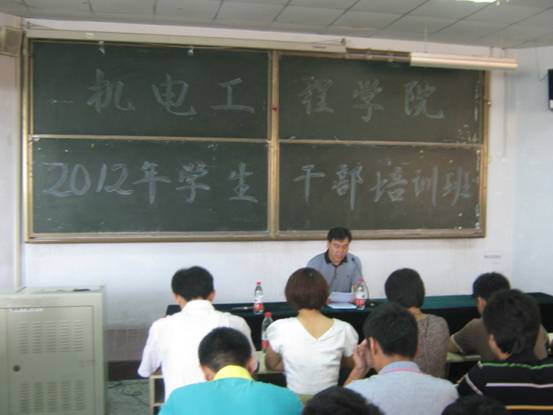 机电工程学院
2012年学生干部培训班